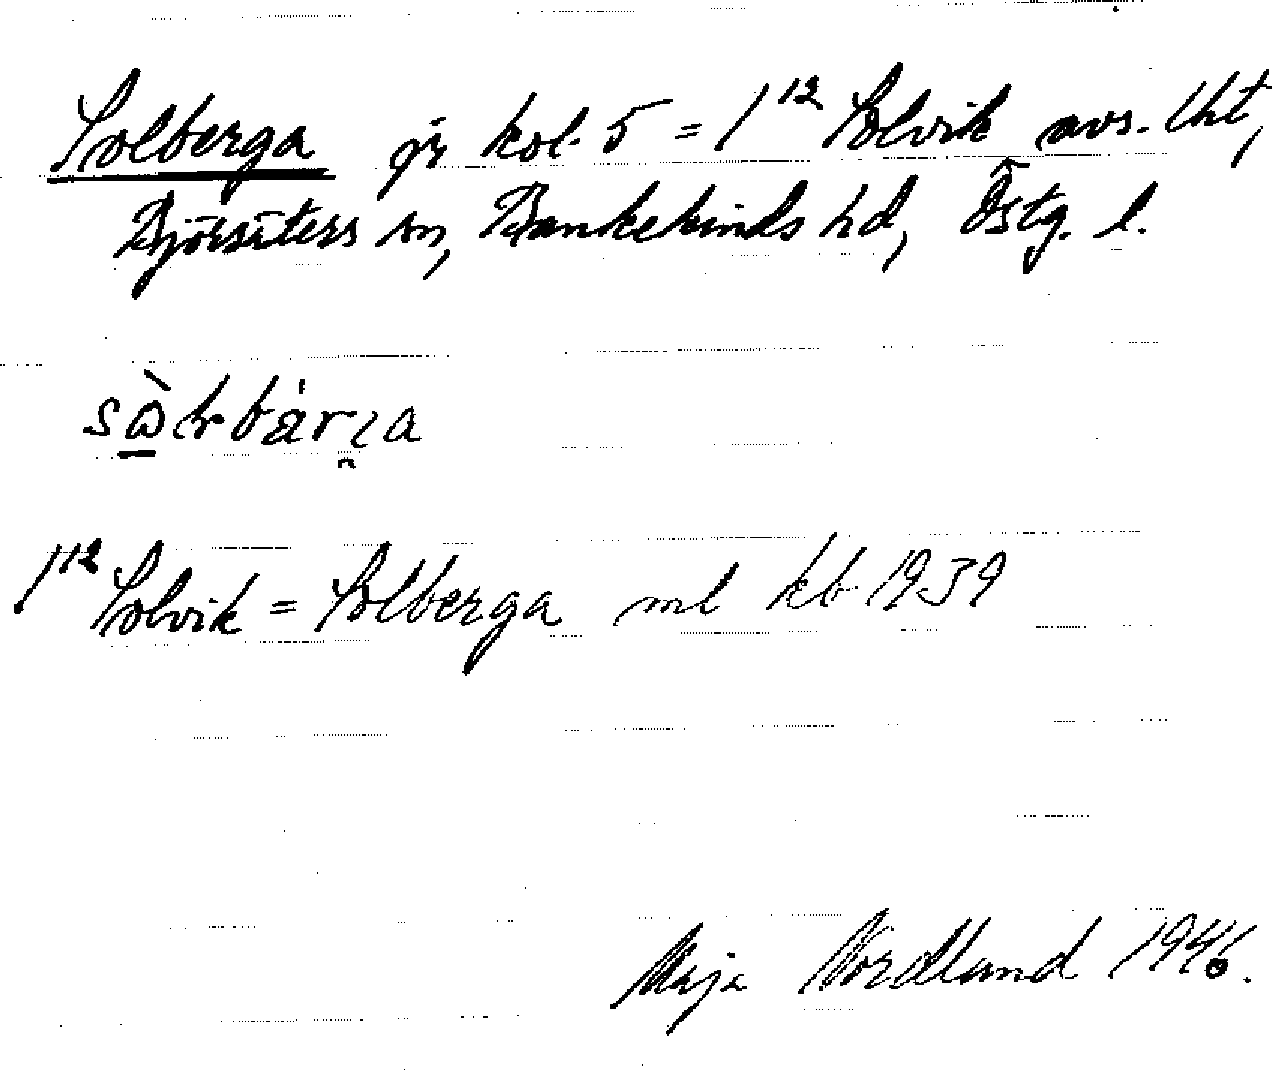 Solberga jr kol. 5 = 1¹² Solvik avs. lht,
Björsäters sn, Bankekinds hd, Östg. l.
1¹² Solvik = Solberga ml kb 1939
Maja Nordlund 1946.